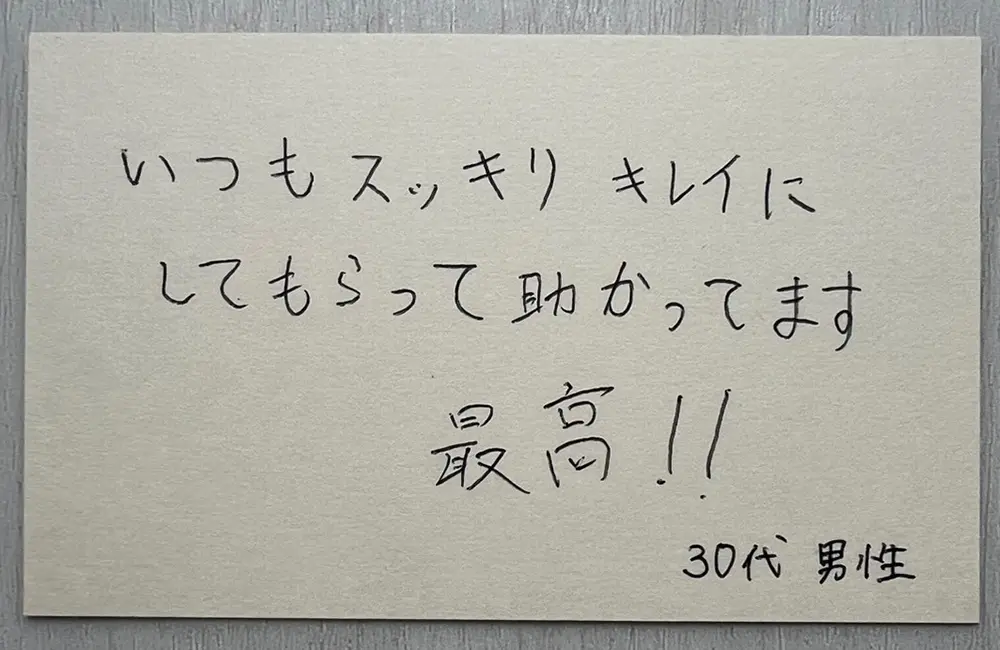 いつもスッキリ キレイに
してもらって助かってます
最高!!
30代 男性